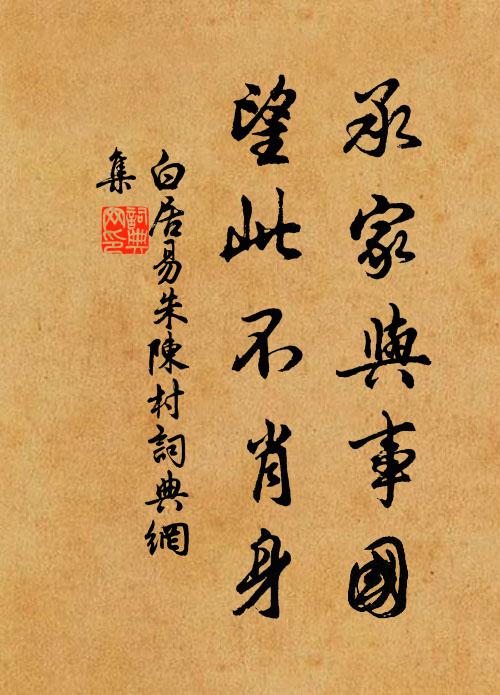 承家與事國
望此不肖身
白居易朱陳村詞典網
集
詞典
網印